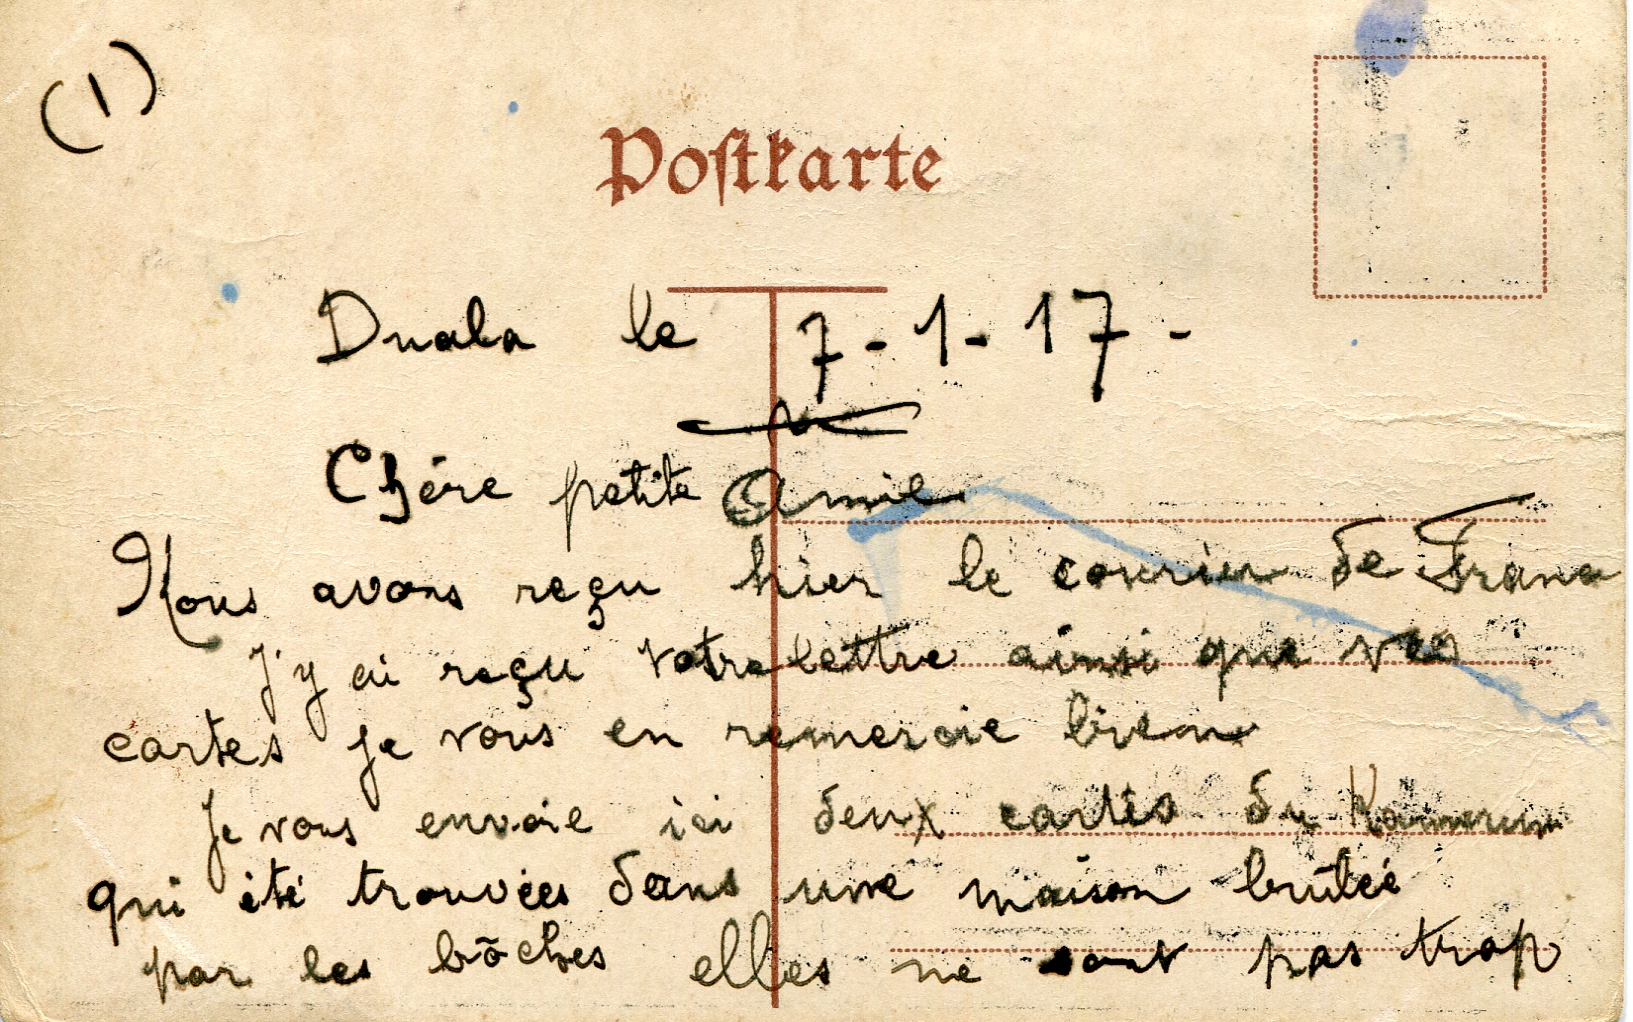 (1)
Postkarte
Duala le 7-1-17-
Chère petite Amie
Nous avons reçu hier le courrier de France
J'y ai reçu votre lettre ainsi que vos
cartes je vous en remercie bien
Je vous envoie ici deux cartes du Kamerun
qui été trouvées dans une maison brûlée
par les bôches elles ne sont pas trop